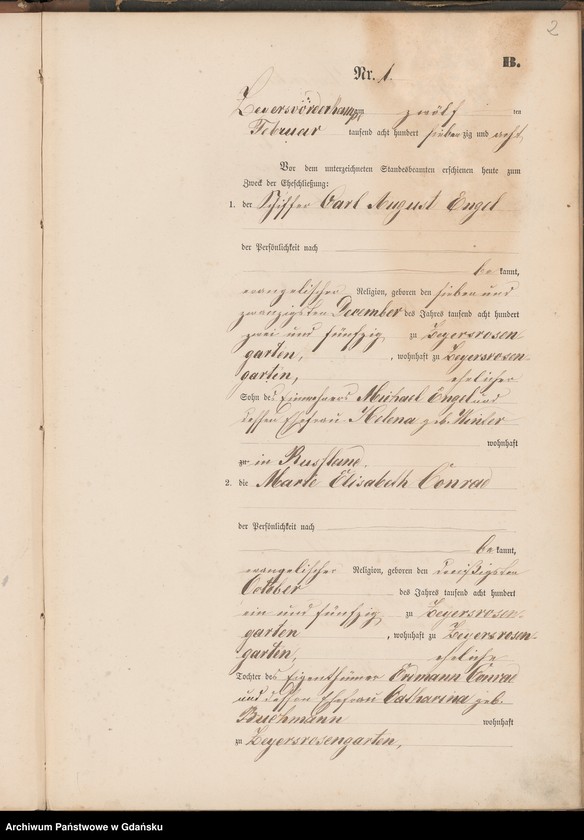 2
B.
Nr. 1.
Zeyersvörderkamp, am zwölf ten
Februar tausend acht hundert siebenzig und acht
Vor dem unterzeichneten Standesbeamten erschienen heute zum
Zweck der Eheschließung:
1. der Schiffer Carl August Engel
der Persönlichkeit nach
be kannt,
evangelischer Religion, geboren den sieben und
zwanzigsten December des Jahres tausend acht hundert
zwei und fünfzig zu Zeyersrosen-
garten, , wohnhaft zu Zeyersrosen-
garten, ehelicher
Sohn des Einwohners Michael Engel und
dessen Ehefrau Helena geb.
wohnhaft
zu in Russland.
2. die Marie Elisabeth Conrad
der Persönlichkeit nach
be kannt,
evangelischer Religion, geboren den dreißigsten
October des Jahres tausend acht hundert
ein und fünfzig zu Zeyersrosen-
garten , wohnhaft zu Zeyersrosen-
garten, eheliche
Tochter des Eigenthümer Ermann Conrad
und dessen Ehefrau Catharina geb.
Buchmann wohnhaft
zu Zeyersrosengarten,
Archiwum Państwowe w Gdańsku